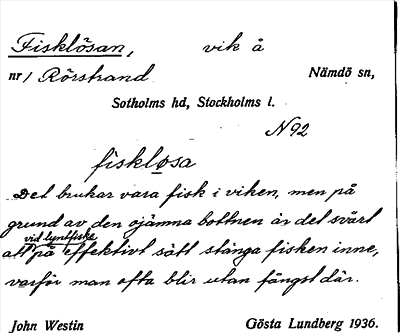 Fisklösan, vik å
nr 1 Rörstrand Nämdö sn,
Sotholms hd, Stockholms l.
N 92
fiskløsa
Det brukar vara fisk i viken, men på
grund av den ojämna bottnen är det svårt
vid lyntfiske
att på effektivt sätt stänga fisken inne,
varför man ofta blir utan fångst där.
John Westin Gösta Lundberg 1936.